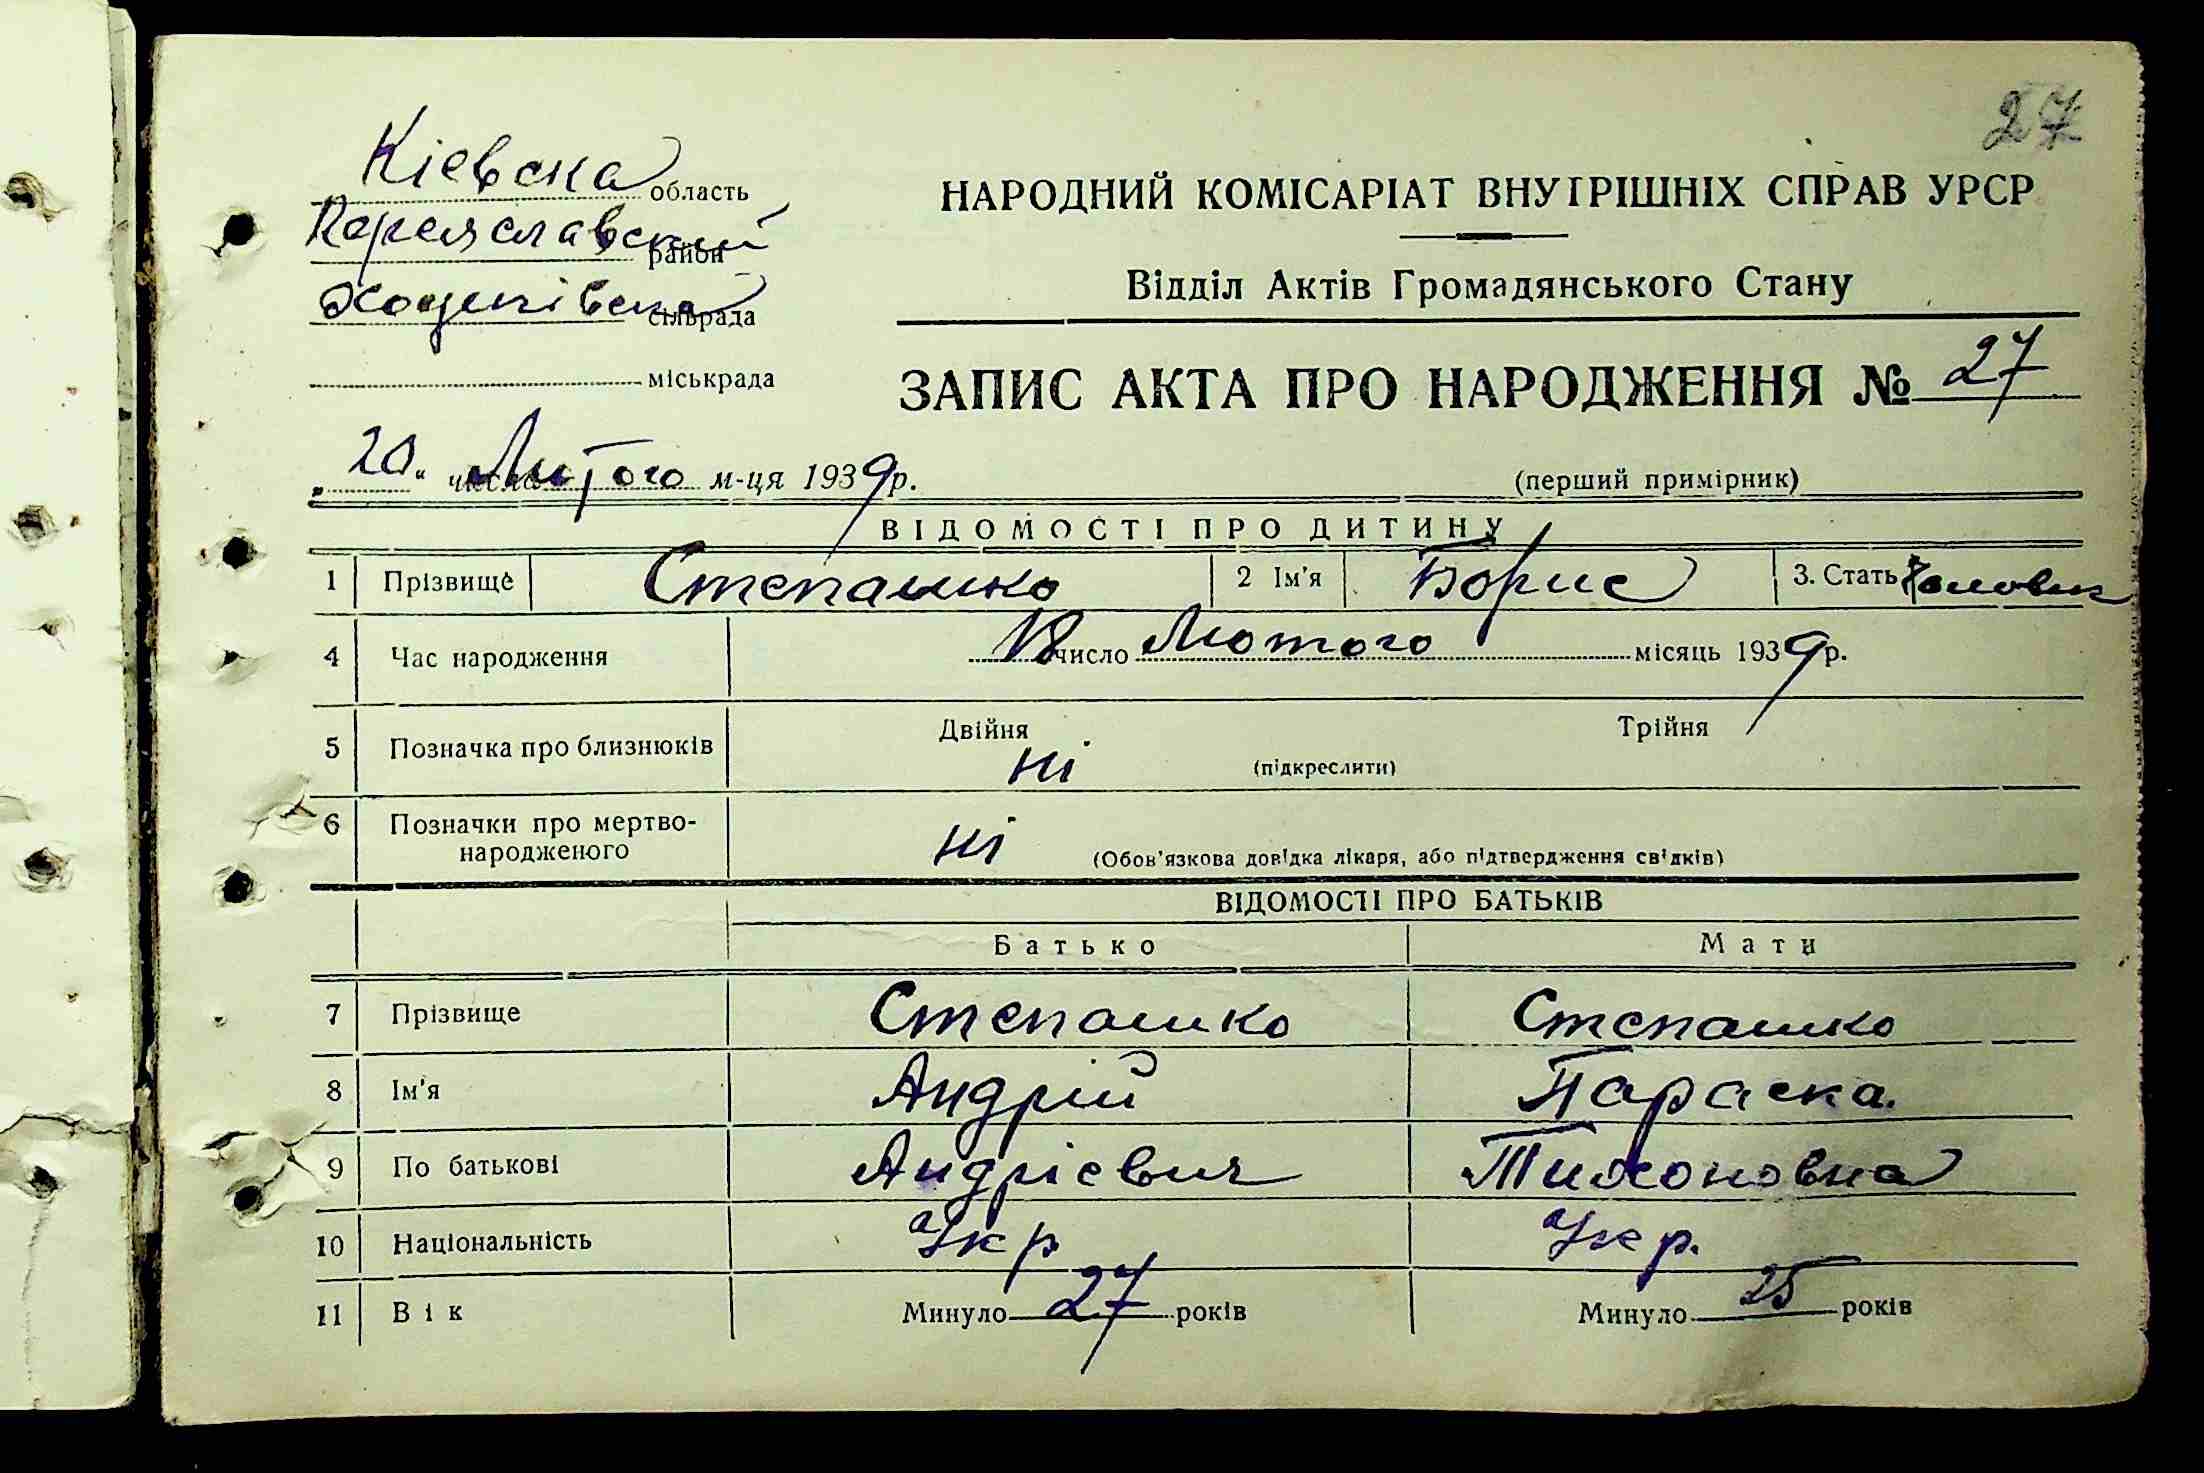 27
Кієвска область
Переяславский район
Хоцківска сільрада
міськрада
НАРОДНИЙ КОМІСАРІАТ ВНУТРІШНІХ СПРАВ УРСР
Відділ Актів Громадянського Стану
ЗАПИС АКТА ПРО НАРОДЖЕННЯ № 27
„20“ числа Лютого м-ця 1939 р.
(перший примірник)
ВІДОМОСТІ ПРО ДИТИНУ
1 Прізвище Степашко 2 Ім'я Борис 3. Стать Чоловік
4 Час народження 18 число Лютого місяць 1939 р.
5 Позначка про близнюків Двійня Трійня
ні (підкреслити)
6 Позначки про мертво-
народженого ні (Обов'язкова довідка лікаря, або підтвердження свідків)
ВІДОМОСТІ ПРО БАТЬКІВ
Батько Мати
7 Прізвище Степашко Степашко
8 Ім'я Андрій Параска.
9 По батькові Андрієвич Тихоновна
10 Національність Укр Укр.
11 Вік Минуло 27 років Минуло 25 років